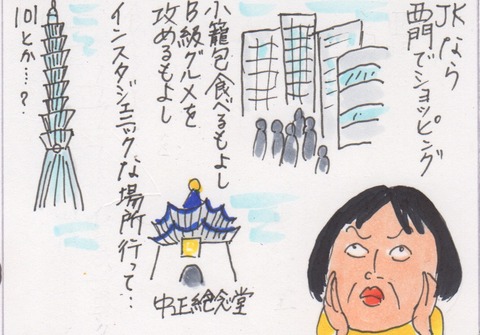 JKなら
西門でショッピング
小籠包食べるもよし
B級グルメを
攻めるもよし
インスタジェニックな場所行って…
101とか…?
中正紀念堂